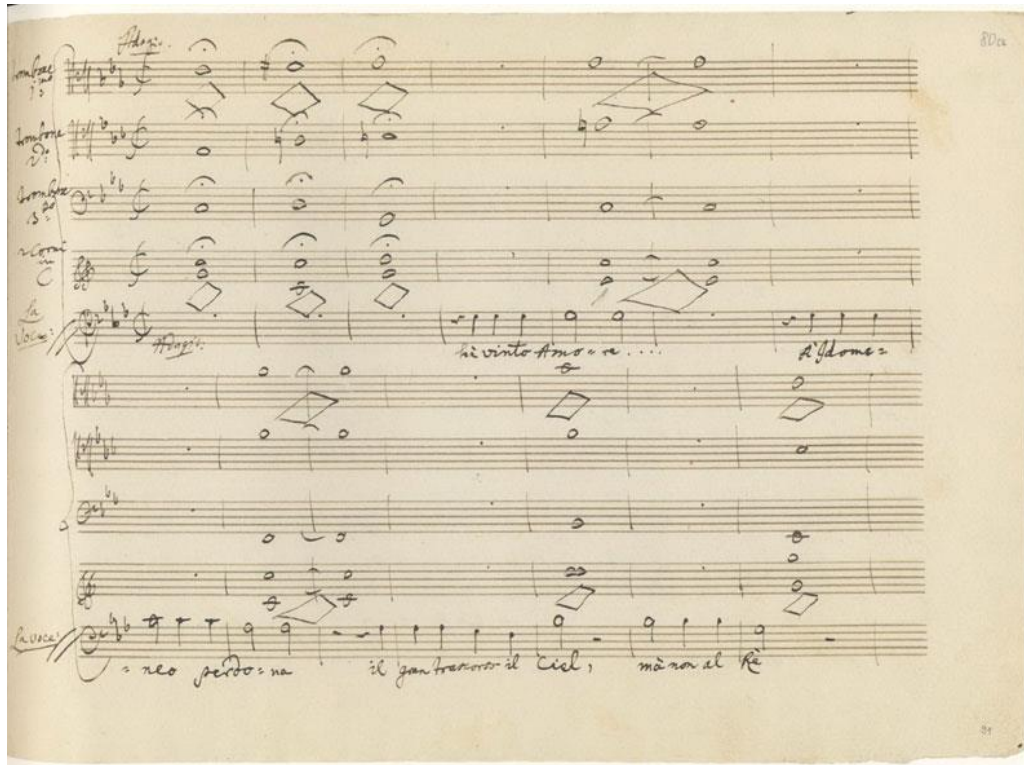 Adagio.
80
trombone
1mo
trombone
2do
trombone
3
2 Corni
in
C
La
Voce:
Adagio.
hà vinto Amo=re....
A Idome=
La voce:
=neo perdo=na il gran trascorso il Ciel, mà non al Rè